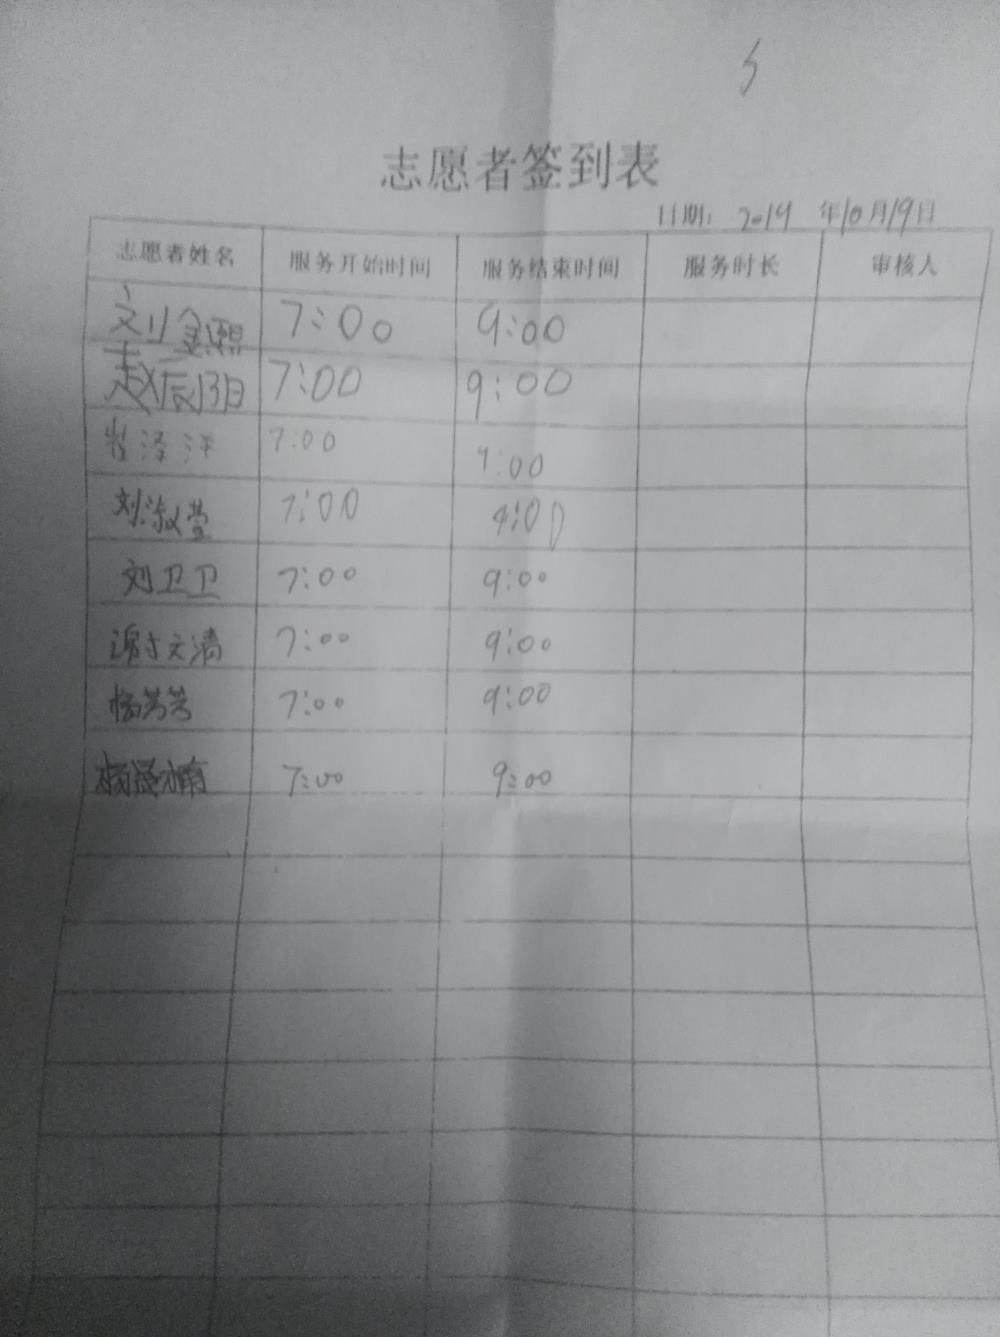 志愿者签到表
日期: 2019 年10月19日
志愿者姓名 服务开始时间 服务结束时间 服务时长 审核人
刘金熙 7:00 9:00
赵辰阳 7:00 9:00
崔泽洋 7:00 9:00
刘淑萱 7:00 9:00
刘卫卫 7:00 9:00
谢文清 7:00 9:00
杨芳芳 7:00 9:00
杨 楠 7:00 9:00